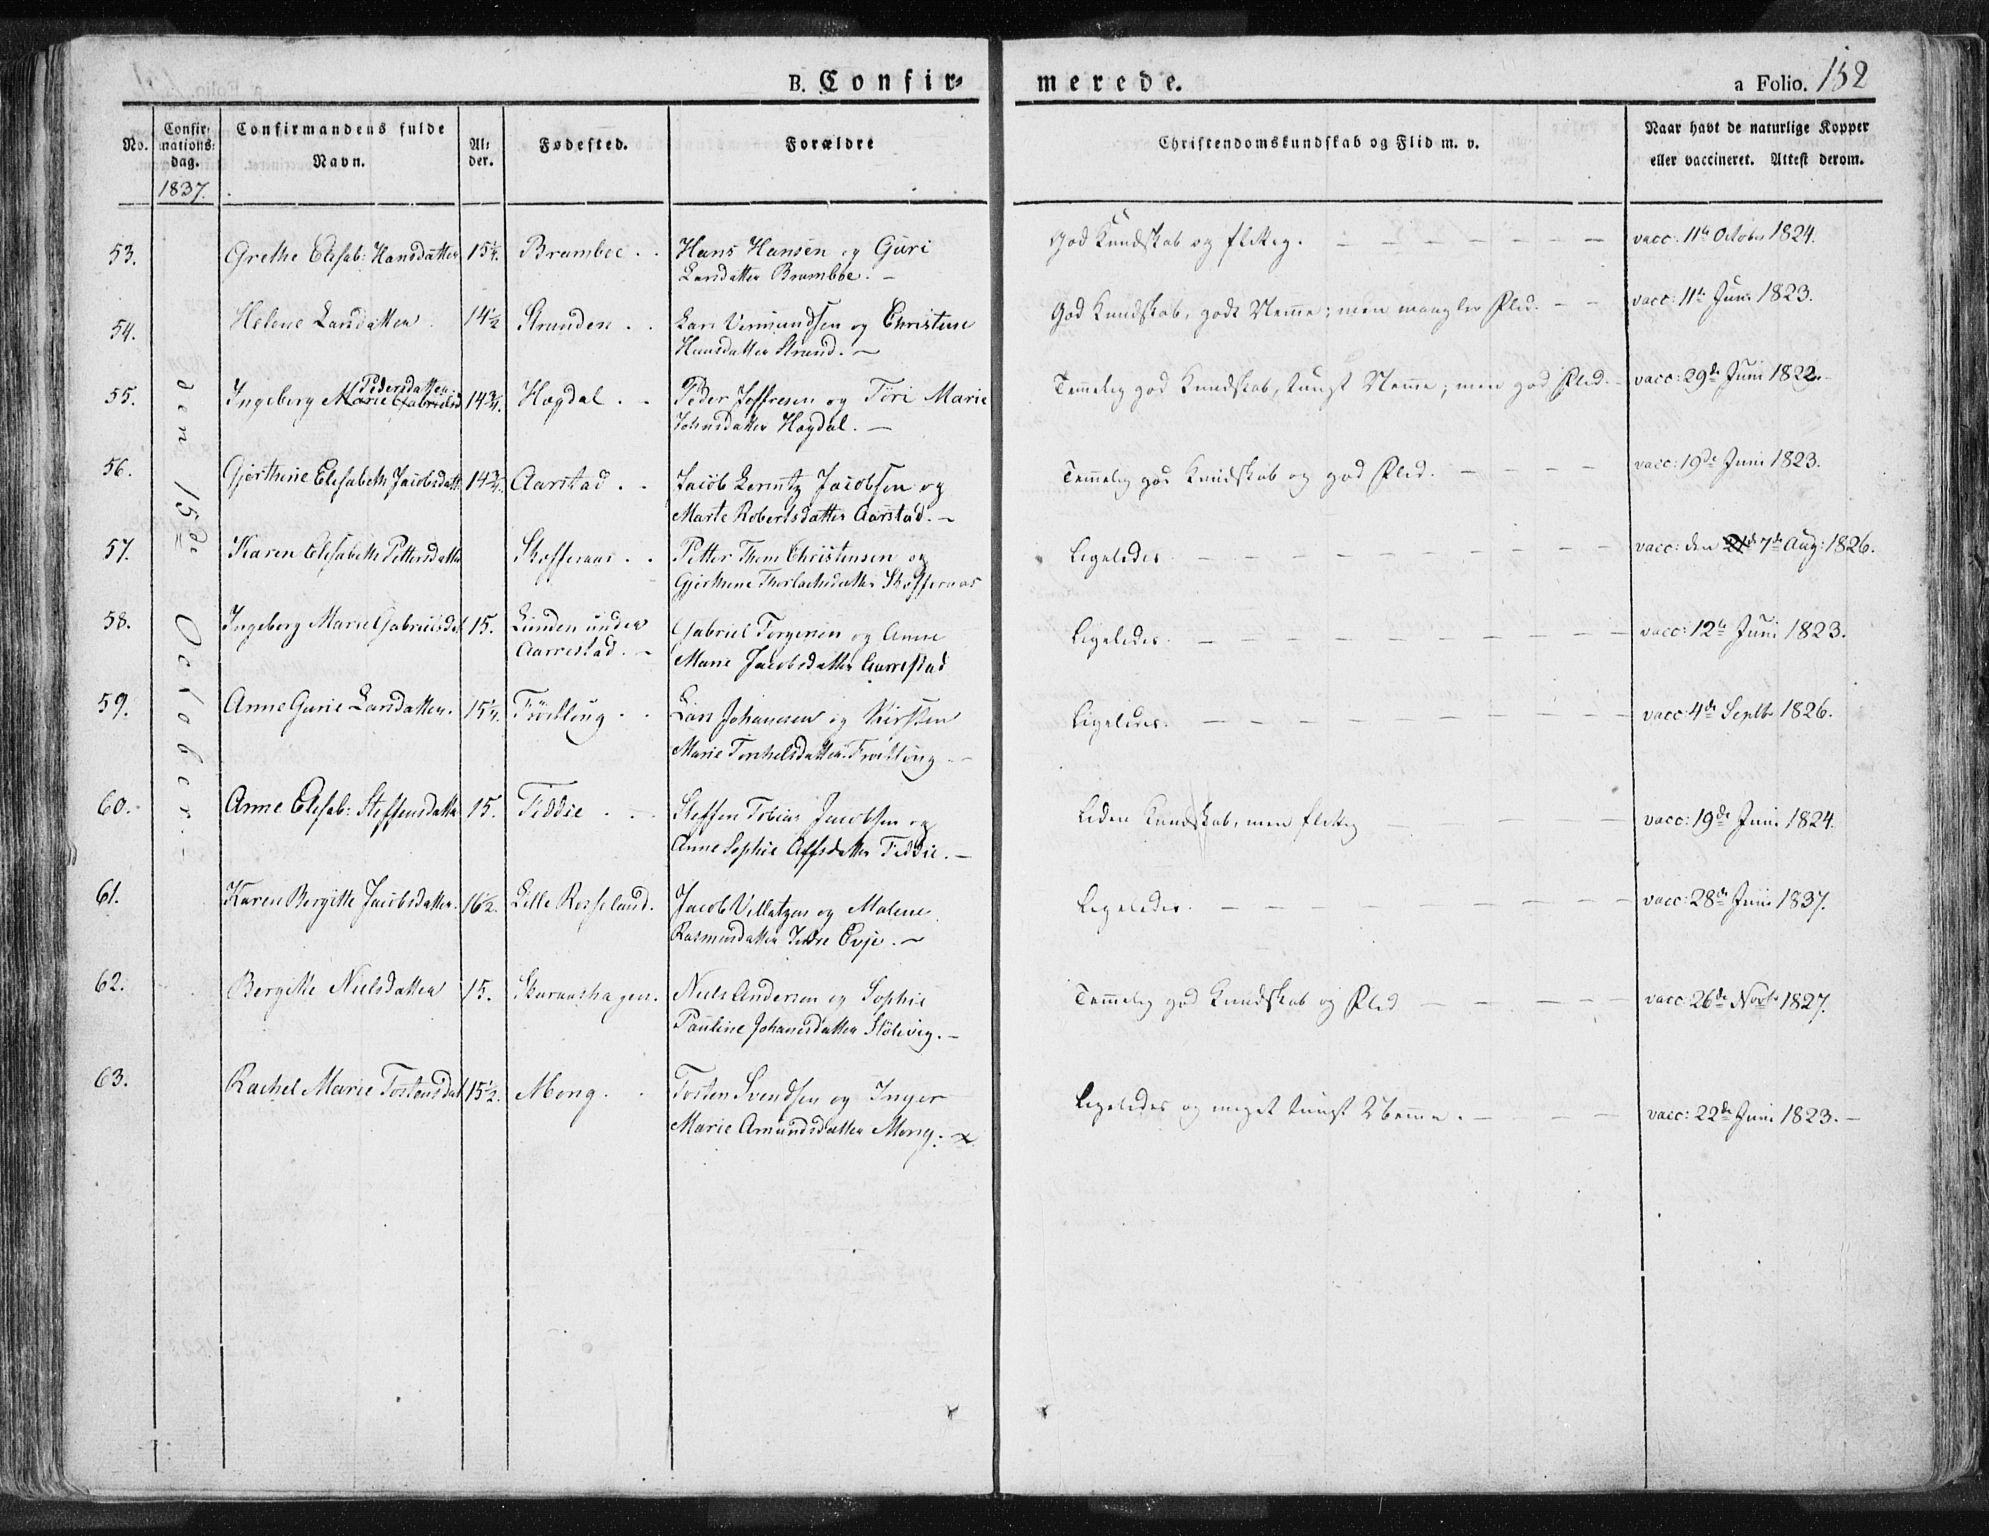 B. Confir-
merede.
a Folio. 152
No.
Confir-
mations-
dag.
1837.
Confirmandens fulde
Navn.
Al-
der.
Fødested.
Forældre
Christendomskundskab og Flid m. v.
Naar havt de naturlige Kopper
eller vaccineret. Attest derom.
den 15de October. –
53. Grethe Elisab: Hansdatter 15¼. Bramboe . . Hans Hansen og Guri God Kundskab og flittig. – vacc: 11te October 1824.
Larsdatter Bramboe. –
54. Helene Larsdatter. 14½ Stranden . . Lars Vermundsen og Christine God Kundskab, godt Nemme; men mangler Flid. – – vacc: 11te Juni 1823.
Hansdatter Strand. –
Pedersdatter
55. Ingeborg Marie Gabrielsd 14¾. Høgdal . . Peder Joffresen og Töri Marie Temmelig god Kundskab, tungt Nemme; men god Flid. – vacc: 29de Juni 1822. –
Johnsdatter Høgdal. –
56. Gjerthine Elisabeth Jacobsdatt 14¾. Aarstad . . Jacob Lorentz Jacobsen og Temmelig god Kundskab og god Flid. – vacc: 19de Juni 1823.
Marte Robertsdatter Aarstad. –
57. Karen Elisabeth Pettersdatter Skofferaas . . Petter Thom Christensen og Ligeledes – vacc: den 7de Aug: 1826.
Gjerthine Thorlachsdatter Skofferaas
58. Ingeborg Marie Gabrielsdat 15. Lunden under Gabriel Torgersen og Anne Ligeledes. – vacc: 12te Juni 1823.
Aarrestad. – Marie Jacobsdatter Aarrestad
59. Anne Gurie Larsdatter. 15¼. Fröitlong . . Lars Johannesen og Kirsten Ligeledes. – vacc: 4de Septb 1826.
Marie Tonchelsdatter Froitlong –
60. Anne Elisab: Steffensdatter 15. Feddie . . . Steffen Tobias Jacobsen og Liden Kundskab, men flittig – vacc: 19de Juni 1824.
Anne Sophie Assdatter Feddie. –
61. Karen Bergitte Jacobsdatter. 16½. Lille Rosseland. Jacob Villatzen og Malene Ligeledes. – vacc: 28de Juni 1837.
Rasmusdatter Evje. –
62. Bergitte Nielsdatter 15. Skaraashagen. Niels Andersen og Sophie Temmelig god Kundskab og Flid – vacc: 26de Novbr 1827.
Pauline Johanesdatter Stölevig. –
63. Rachel Marie Tostensdat 15½. Mong. . Tosten Svendsen og Inger Ligeledes og meget tungt Nemme. – vacc: 22de Juni 1823. –
Marie Amundsdatter Mong.